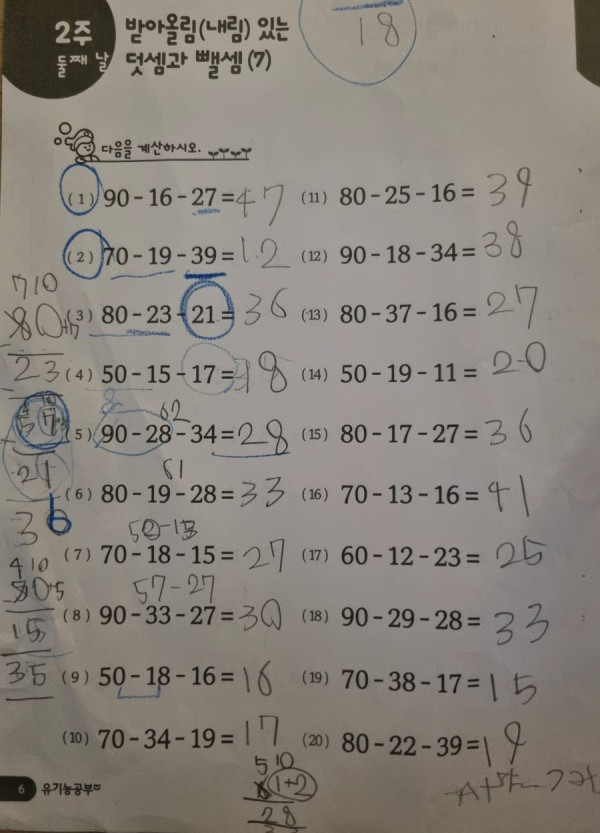 18
2주
둘째 날
받아올림(내림) 있는
덧셈과 뺄셈 (7)
다음을 계산하시오.
(1) 90 - 16 - 27 = 47
(2) 70 - 19 - 39 = 12
(3) 80 - 23 - 21 = 36
(4) 50 - 15 - 17 = 18
(5) 90 - 28 - 34 = 28
62
(6) 80 - 19 - 28 = 33
61
(7) 70 - 18 - 15 = 27
(8) 90 - 33 - 27 = 30
57-27
(9) 50 - 18 - 16 = 16
(10) 70 - 34 - 19 = 17
(11) 80 - 25 - 16 = 39
(12) 90 - 18 - 34 = 38
(13) 80 - 37 - 16 = 27
(14) 50 - 19 - 11 = 20
(15) 80 - 17 - 27 = 36
(16) 70 - 13 - 16 = 41
(17) 60 - 12 - 23 = 25
(18) 90 - 29 - 28 = 33
(19) 70 - 38 - 17 = 15
(20) 80 - 22 - 39 = 19
7 10
80
23
57
21
36
4 10
50+5
15
35
5 10
28
6 유기농공부